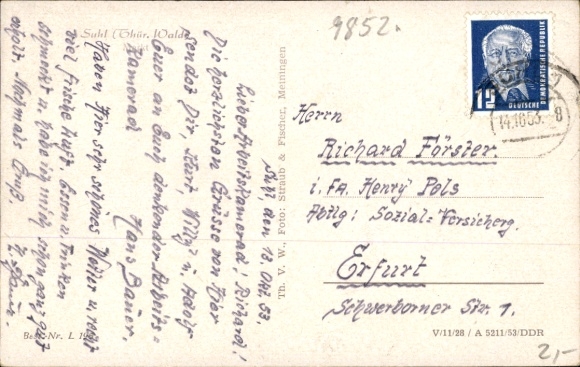 9852.
Suhl (Thür. Wald)
Suhl, den 13. Okt. 53.
Lieber Arbeitskamerad! Richard!
Die herzlichsten Grüsse von hier
sendet Dir, Kurt, Willy u. Adolf
Euer an Euch denkender Arbeits=
kamerad
Hans Bauer.
Haben hier sehr schönes Wetter u. recht
viel frische Luft. Essen u. Trinken
schmeckt u. habe ich mich schon ganz gut
erholt. Nochmals Gruß.
H. Bauer.
Th. V. W., Foto: Straub & Fischer, Meiningen
DEUTSCHE DEMOKRATISCHE REPUBLIK
12
14.10.53.-8
Herrn
Richard Förster.
i. FA. Henry Pels
Abtlg: Sozial=Versicherg.
Erfurt
Schwerborner Str. 1.
Best.-Nr. L
V/11/28 / A 5211/53/DDR
2,-